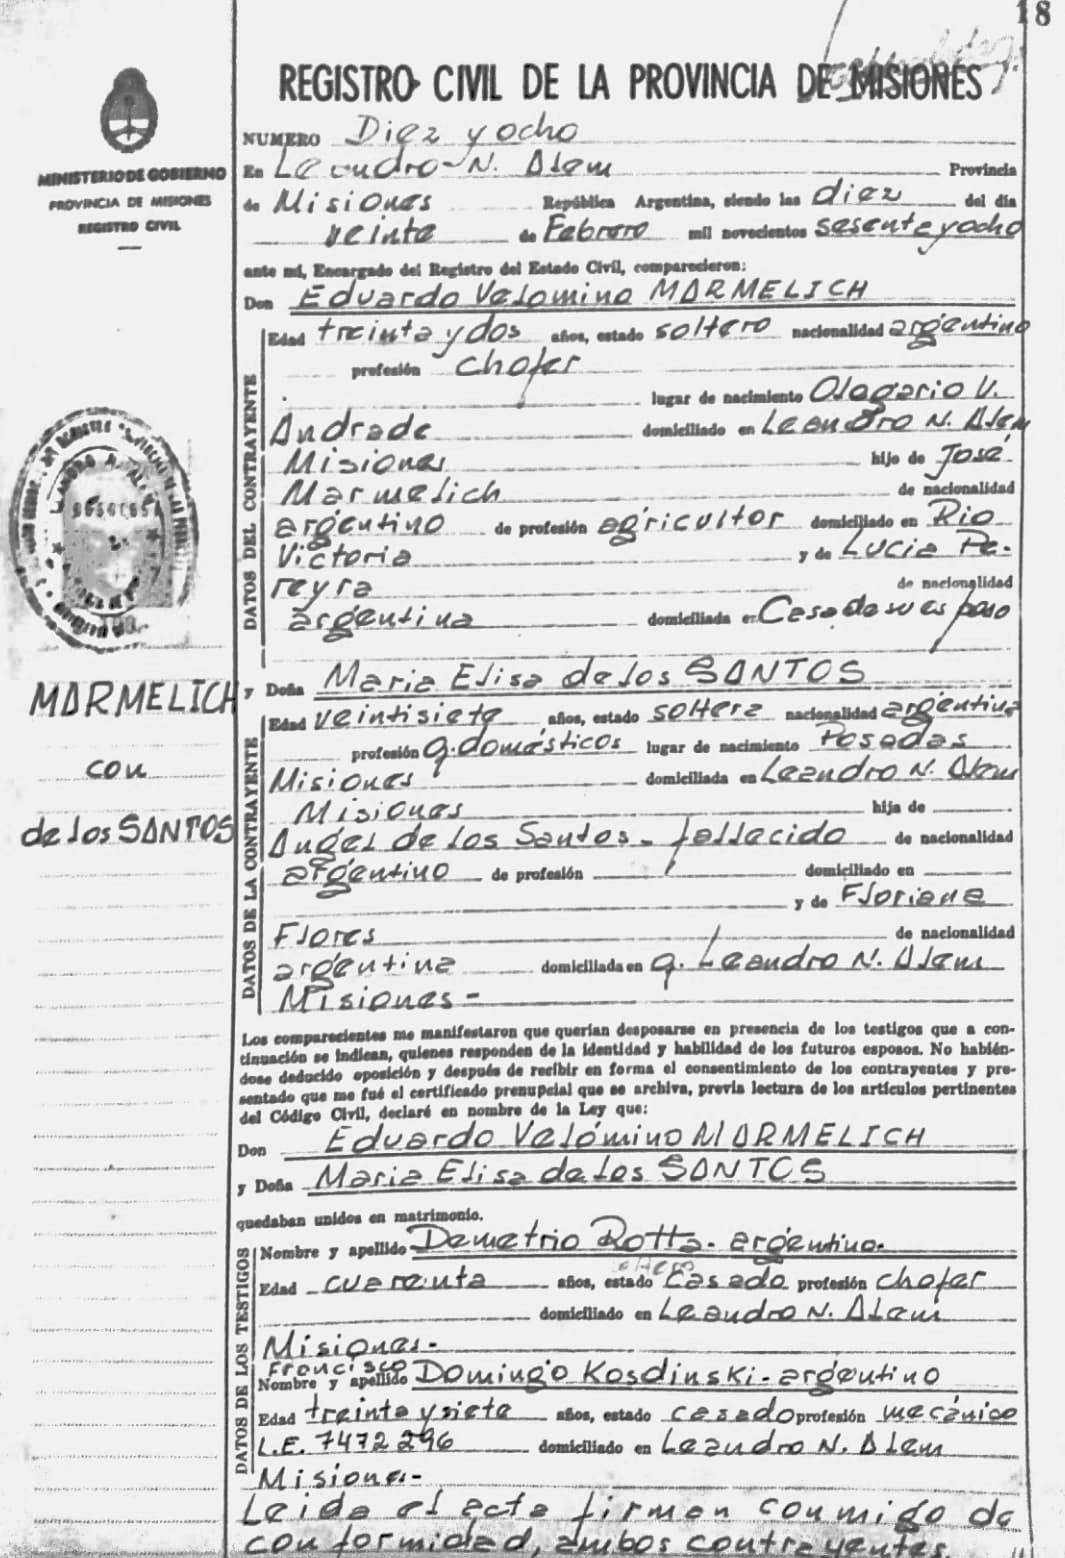 18
REGISTRO CIVIL DE LA PROVINCIA DE MISIONES
MINISTERIO DE GOBIERNO
PROVINCIA DE MISIONES
REGISTRO CIVIL
NUMERO Diez y ocho
En Leandro N. Alem Provincia
de Misiones República Argentina, siendo las diez del día
veinte de Febrero mil novecientos sesenta y ocho
ante mí, Encargado del Registro del Estado Civil, comparecieron:
Don Eduardo Velomino MARMELICH
DATOS DEL CONTRAYENTE
Edad treinta y dos años, estado soltero nacionalidad argentino
profesión chofer
lugar de nacimiento Olegario V.
Andrade domiciliado en Leandro N. Alem
Misiones hijo de José
Marmelich de nacionalidad
argentino de profesión agricultor domiciliado en Rio
Victoria y de Lucia Pe-
reyra de nacionalidad
argentina domiciliada en Casa de su esposo
MARMELICH
con
de los SANTOS
y Doña Maria Elisa de los SANTOS
DATOS DE LA CONTRAYENTE
Edad veintisiete años, estado soltera nacionalidad argentina
profesión q. domésticos lugar de nacimiento Posadas
Misiones domiciliada en Leandro N. Alem
Misiones hija de
Angel de los Santos - fallecido de nacionalidad
argentino de profesión domiciliado en
y de Floriana
Flores de nacionalidad
argentina domiciliada en q. Leandro N. Alem
Misiones -
Los comparecientes me manifestaron que querían desposarse en presencia de los testigos que a con-
tinuación se indican, quienes responden de la identidad y habilidad de los futuros esposos. No habién-
dose deducido oposición y después de recibir en forma el consentimiento de los contrayentes y pre-
sentado que me fué el certificado prenupcial que se archiva, previa lectura de los artículos pertinentes
del Código Civil, declaré en nombre de la Ley que:
Don Eduardo Velómino MARMELICH
y Doña Maria Elisa de los SANTOS
quedaban unidos en matrimonio.
DATOS DE LOS TESTIGOS
Nombre y apellido Demetrio Rotta - argentino.
Edad cuarenta años, estado casado profesión chofer
domiciliado en Leandro N. Alem
Misiones -
Francisco
Nombre y apellido Domingo Kosdinski - argentino
Edad treinta y siete años, estado casado profesión mecánico
L.E. 7472296 domiciliado en Leandro N. Alem
Misiones -
Leida el acta firman conmigo de
conformidad, ambos contrayentes